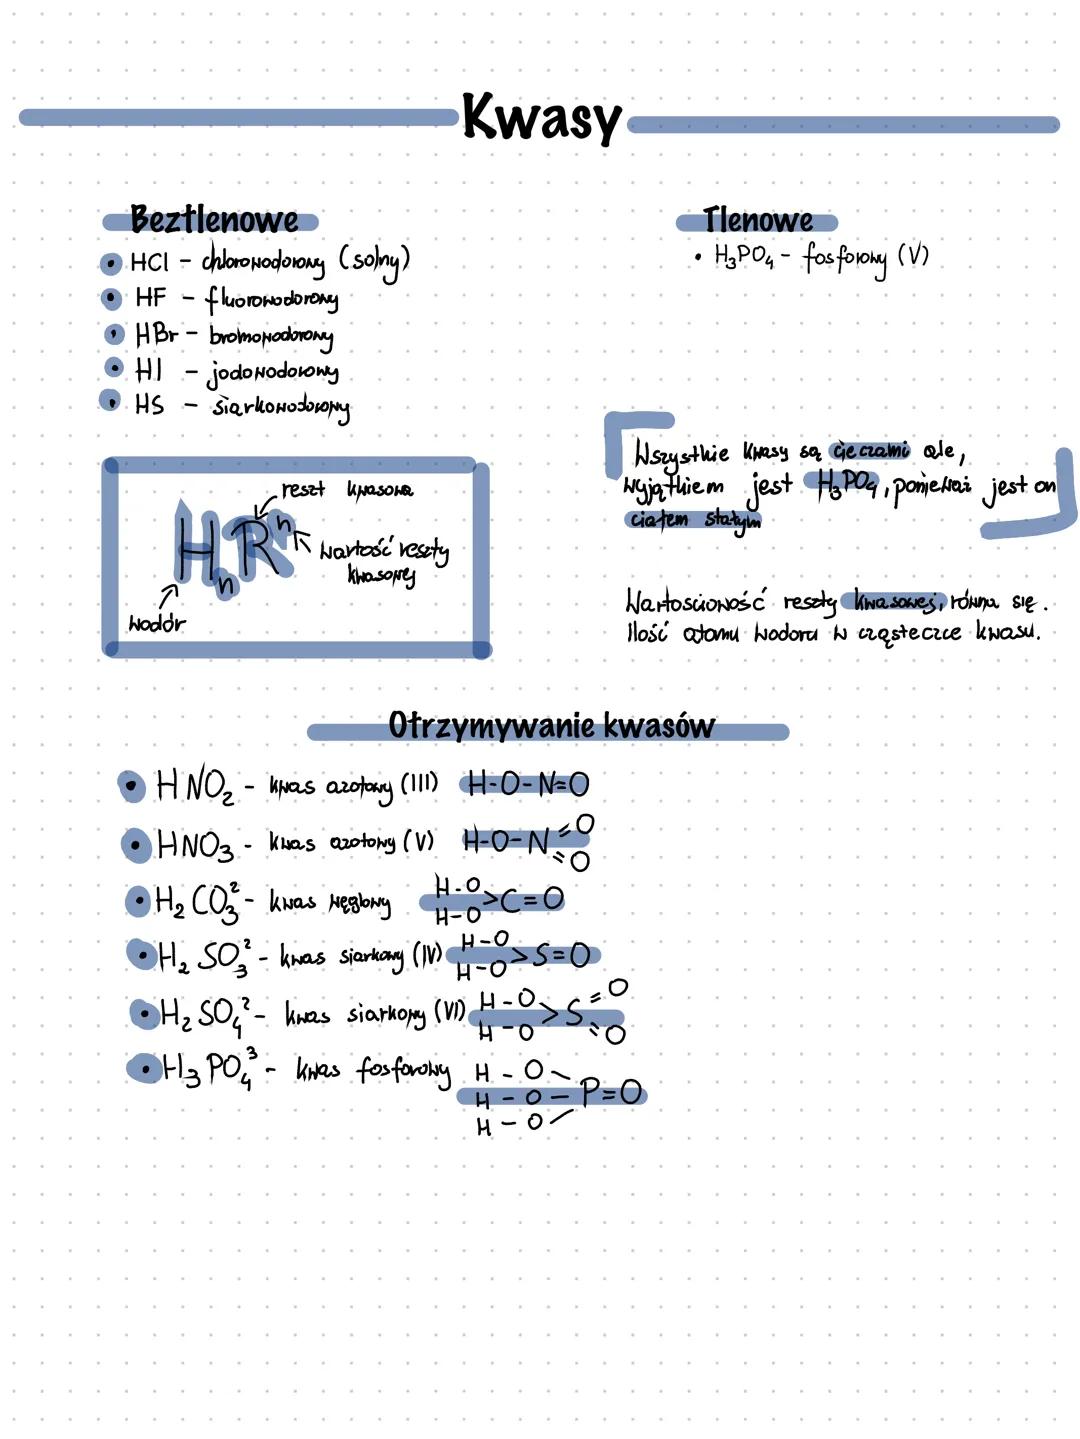 Kwasy
Beztlenowe
• HCl - chlorowodorowy (solny)
• HF - fluorowodorowy
• HBr - bromowodorowy
• HI - jodowodorowy
• HS - siarkowodorowy
Tlenowe
• H₃PO₄ - fosforowy (V)
reszt kwasowa
HₙRⁿ
wartość reszty
kwasowej
wodór
Wszystkie kwasy są cieczami ale,
wyjątkiem jest H₃PO₄, ponieważ jest on
ciałem stałym
Wartosciowość reszty kwasowej, równa się.
Ilość atomu wodoru w cząsteczce kwasu.
Otrzymywanie kwasów
• HNO₂ - kwas azotowy (III) H-O-N=O
• HNO₃ - kwas azotowy (V) H-O-N =O =O
• H₂CO₃² - kwas węglowy H-O H-O >C=O
• H₂SO₃² - kwas siarkowy (IV) H-O H-O >S=O
• H₂SO₄² - kwas siarkowy (VI) H-O H-O >S =O =O
• H₃PO₄³ - kwas fosforowy H-O H-O-P=O H-O